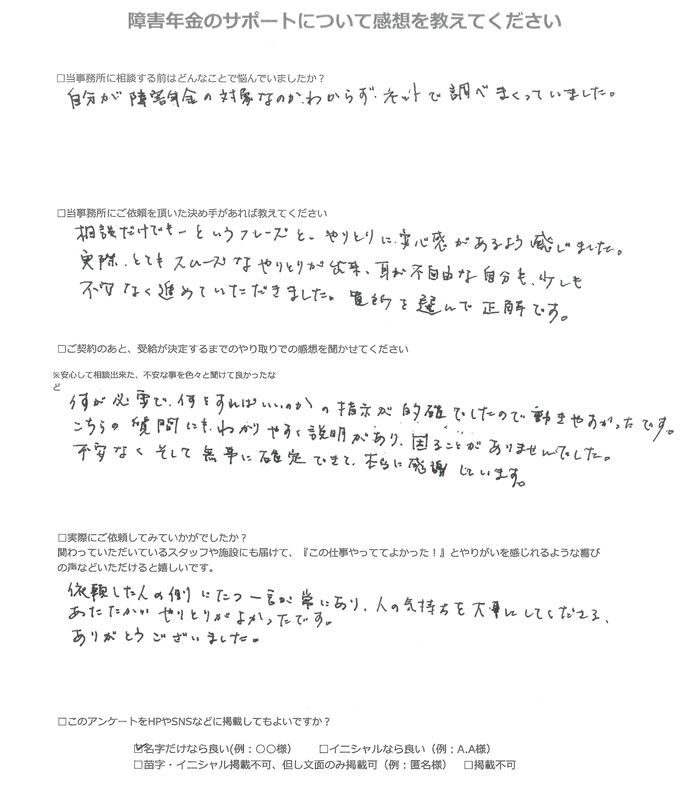 障害年金のサポートについて感想を教えてください
□当事務所に相談する前はどんなことで悩んでいましたか？
自分が障害年金の対象なのか、わからず、ネットで調べまくっていました。
□当事務所にご依頼を頂いた決め手があれば教えてください
相談だけでもーというフレーズと、やりとりに安心感があるよう感じました。
実際、とてもスムーズなやりとりが出来、耳が不自由な自分も、少しも
不安なく進めていただきました。貴所を選んで正解です。
□ご契約のあと、受給が決定するまでのやり取りでの感想を聞かせてください
※安心して相談出来た、不安な事を色々と聞けて良かったな
ど
何が必要で、何をすればいいのかの指示が的確でしたので動きやすかったです。
こちらの質問にも、わかりやすく説明があり、困ることがありませんでした。
不安なくそして無事に確定できて、本当に感謝しています。
□実際にご依頼してみていかがでしたか？
関わっていただいているスタッフや施設にも届けて、『この仕事やっててよかった！』とやりがいを感じれるような喜び
の声などいただけると嬉しいです。
依頼した人の側にたつ一言が常にあり、人の気持ちを大事にしてくださる、
あたたかいやりとりがよかったです。
ありがとうございました。
□このアンケートをHPやSNSなどに掲載してもよいですか？
☑名字だけなら良い(例：〇〇様） □イニシャルなら良い（例：A.A様）
□苗字・イニシャル掲載不可、但し文面のみ掲載可（例：匿名様） □掲載不可